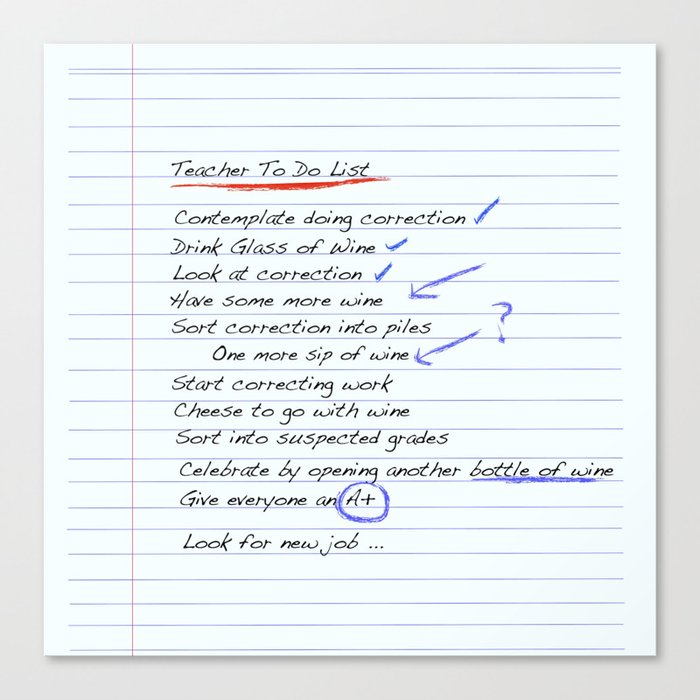 Teacher To Do List
Contemplate doing correction ✓
Drink Glass of Wine ✓
Look at correction ✓
Have some more wine
Sort correction into piles ?
One more sip of wine
Start correcting work
Cheese to go with wine
Sort into suspected grades
Celebrate by opening another bottle of wine
Give everyone an A+
Look for new job ...